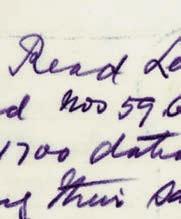 Read L
d Nos 59
1700 dat
ng their sa